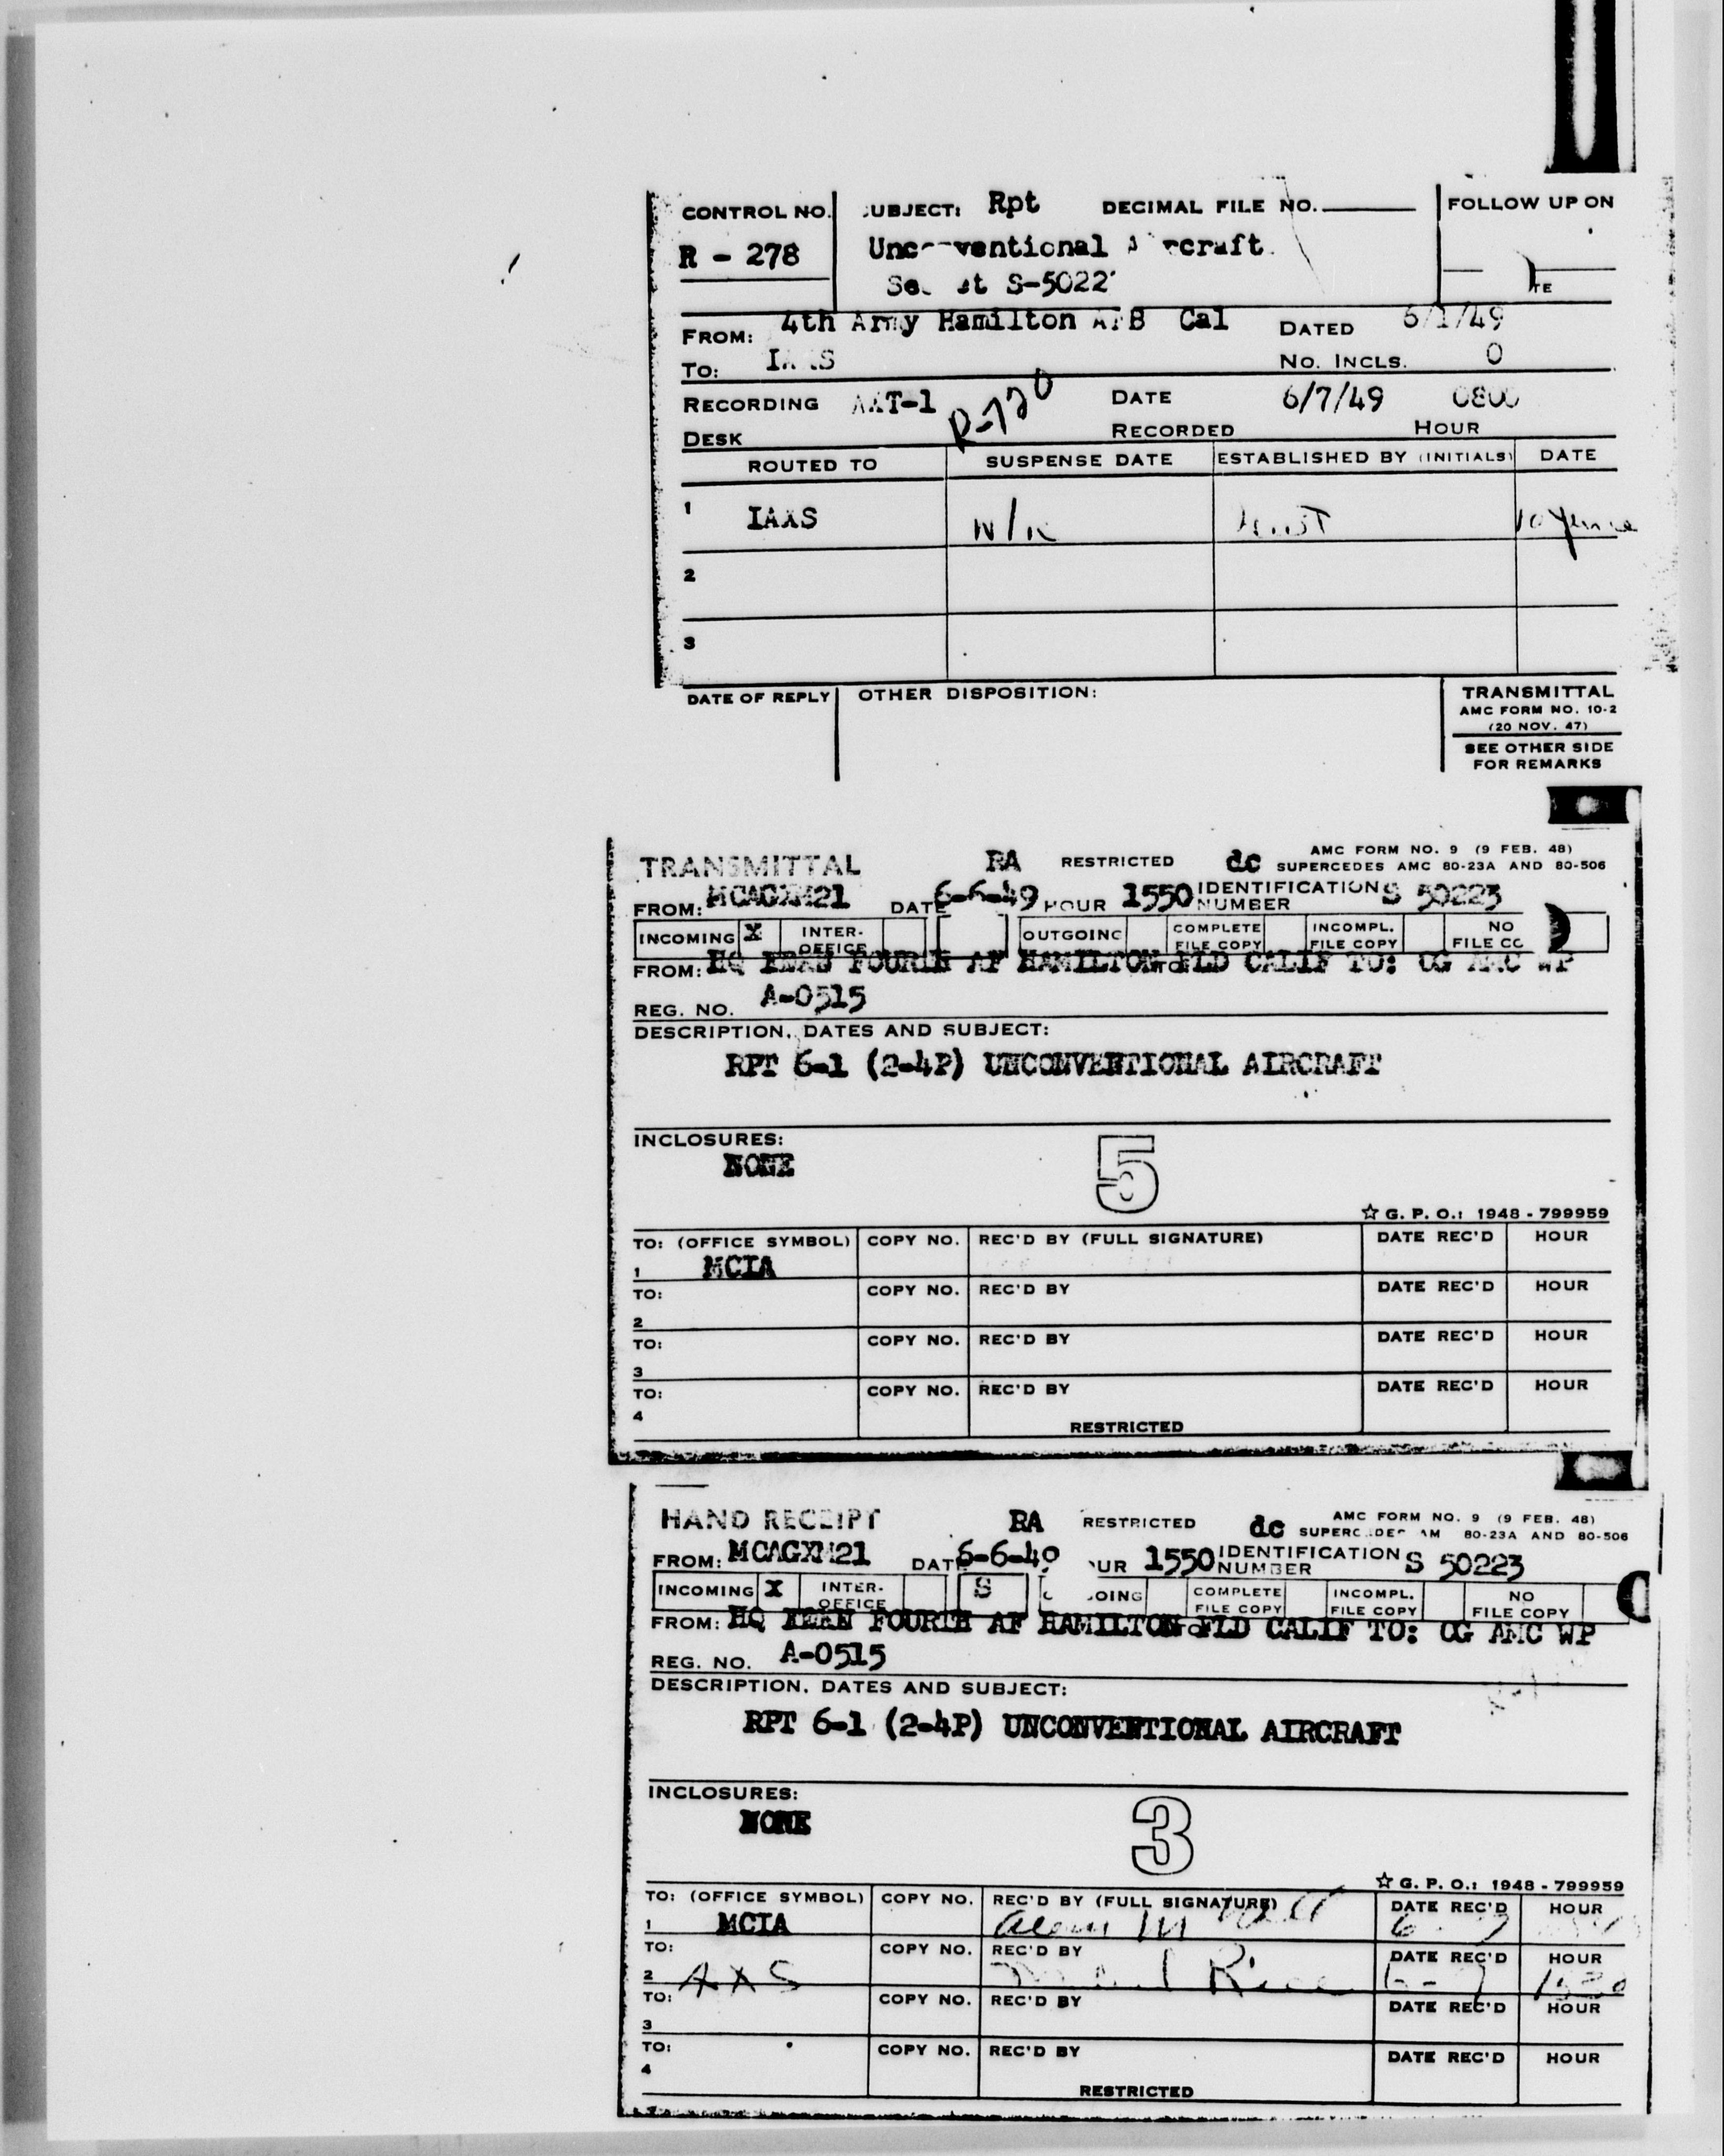 CONTROL NO. UBJECT: Rpt DECIMAL FILE NO. FOLLOW UP ON
R - 278
S-5022
FROM: 4th Army Hamilton AFB Cal DATED 6/1/49
TO: No. INCLS. 0
RECORDING T-1 DATE 6/7/49 0800
DESK RECORDED HOUR
ROUTED TO SUSPENSE DATE ESTABLISHED BY (INITIALS) DATE
1 IAXS
2
3
DATE OF REPLY OTHER DISPOSITION: TRANSMITTAL
AMC FORM NO. 10-2
(20 NOV. 47)
SEE OTHER SIDE
FOR REMARKS
TRANSMITTAL RA RESTRICTED dc AMC FORM NO. 9 (9 FEB. 48)
SUPERCEDES AMC 80-23A AND 80-506
FROM: MCAGXM21 DATE 6-6-49 HOUR 1550 IDENTIFICATION NUMBER S 50223
INCOMING X INTER-OFFICE OUTGOING COMPLETE FILE COPY INCOMPL. FILE COPY NO FILE CO
FROM: HQ FOURTH AF HAMILTON FLD CALIF TO: CG AMC WP
REG. NO. A-0515
DESCRIPTION, DATES AND SUBJECT:
RPT 6-1 (2-4P) UNCONVENTIONAL AIRCRAFT
INCLOSURES:
NONE 5
☆ G. P. O.: 1948 - 799959
TO: (OFFICE SYMBOL) COPY NO. REC'D BY (FULL SIGNATURE) DATE REC'D HOUR
1 MCIA
TO: COPY NO. REC'D BY DATE REC'D HOUR
2
TO: COPY NO. REC'D BY DATE REC'D HOUR
3
TO: COPY NO. REC'D BY DATE REC'D HOUR
4
RESTRICTED
HAND RECEIPT RA RESTRICTED dc AMC FORM NO. 9 (9 FEB. 48)
80-23A AND 80-506
FROM: MCAGXM21 DAT 6-6-49 UR 1550 IDENTIFICATION NUMBER S 50223
INCOMING X INTER-OFFICE S GOING COMPLETE FILE COPY INCOMPL. FILE COPY NO FILE COPY
FROM: HQ FOURTH AF HAMILTON FLD CALIF TO: CG AMC WP
REG. NO. A-0515
DESCRIPTION, DATES AND SUBJECT:
RPT 6-1 (2-4P) UNCONVENTIONAL AIRCRAFT
INCLOSURES:
NONE 3
☆ G. P. O.: 1948 - 799959
TO: (OFFICE SYMBOL) COPY NO. REC'D BY (FULL SIGNATURE) DATE REC'D HOUR
1 MCIA
TO: COPY NO. REC'D BY DATE REC'D HOUR
2 AXS
TO: COPY NO. REC'D BY DATE REC'D HOUR
3
TO: COPY NO. REC'D BY DATE REC'D HOUR
4
RESTRICTED